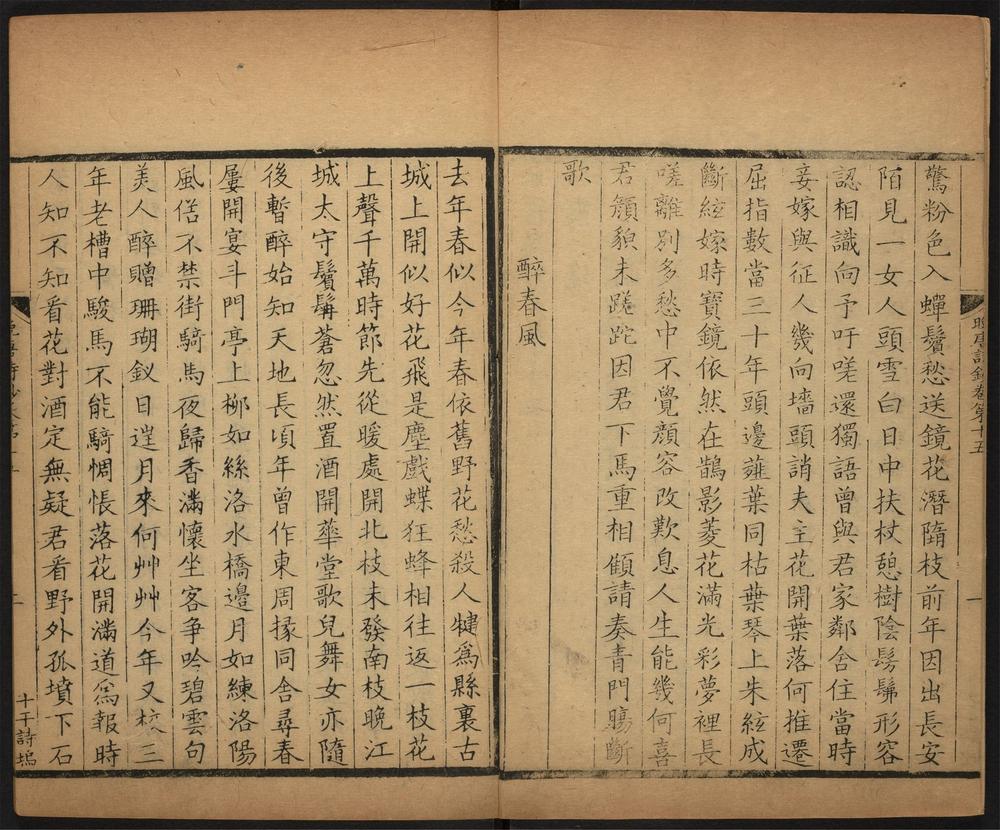 驚粉色入蟬鬢愁送鏡花潛隨枝前年因出長安
陌見一女人頭雪白日中扶杖憩樹陰髣髴形容
認相識向予吁嗟還獨語曾與君家鄰舍住當時
妾嫁與征人幾向墻頭誚夫主花開葉落何推遷
屈指數當三十年頭邊薤葉同枯葉琴上朱絃成
斷絃嫁時寶鏡依然在鵲影菱花滿光彩夢裡長
嗟離別多愁中不覺顏容改歎息人生能幾何喜
君顏貌未蹉跎因君下馬重相顧請奏青門腸斷
歌
醉春風
去年春似今年春依舊野花愁殺人犍爲縣裏古
城上開似好花飛是塵戲蝶狂蜂相往返一枝花
上聲千萬時節先從暖處開北枝未發南枝晚江
城太守鬢髯蒼忽然置酒開華堂歌兒舞女亦隨
後暫醉始知天地長頃年曾作東周掾同舍尋春
屢開宴斗門亭上柳如絲洛水橋邊月如練洛陽
風俗不禁街騎馬夜歸香滿懷坐客争吟碧雲句
美人醉贈珊瑚釵日逞月來何艸艸今年又校三
年老槽中駿馬不能騎惆悵落花開滿道爲報時
人知不知看花對酒定無疑君看野外孤墳下石
晚唐詩鈔卷第十五
一
十千詩塢